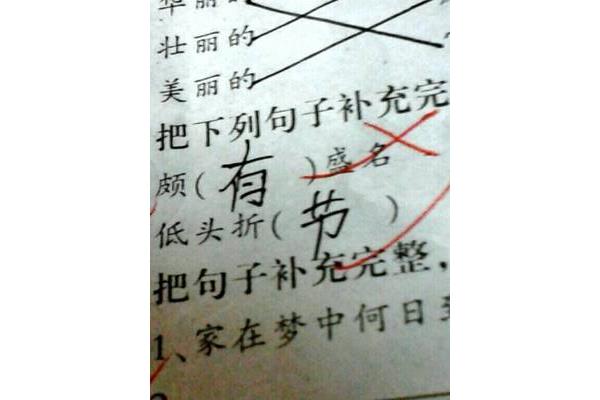 华丽的
壮丽的
美丽的
把下列句子补充完
颇(有)盛名
低头折(节)
把句子补充完整，
1、家在梦中何日